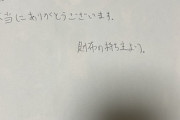 当にありがとうございます。
財布の持ち主より。